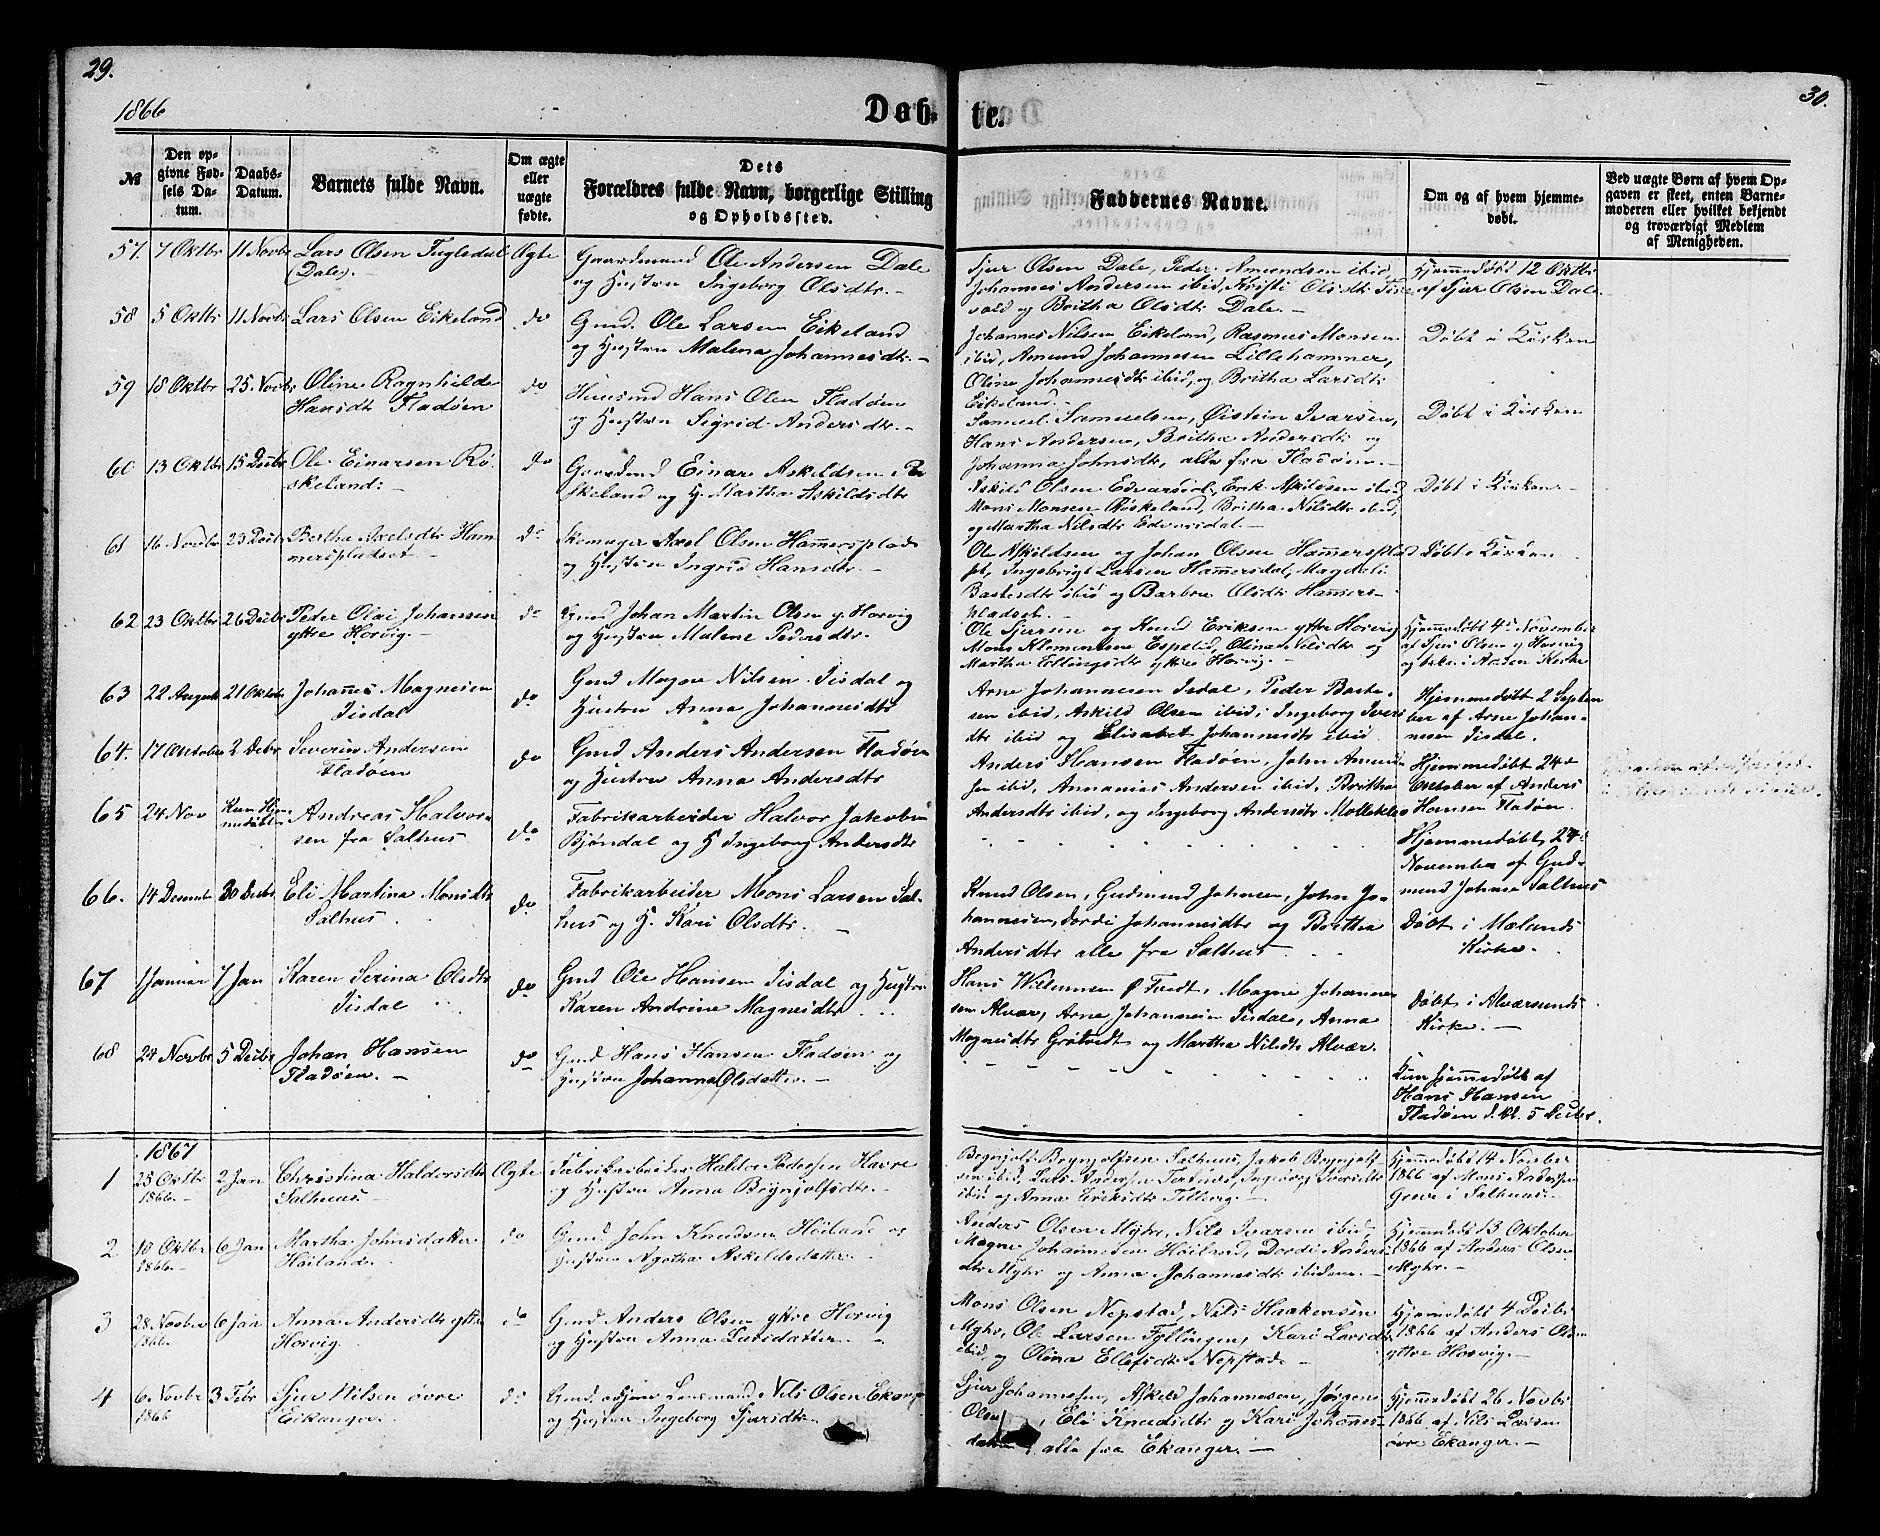 29.
30.
1866
Døb-
te.
№
Den op-
givne Fød-
sels Da-
tum.
Daabs-
Datum.
Barnets fulde Navn.
Om ægte
eller
uægte
fødte.
Dets
Forældres fulde Navn, borgerlige Stilling
og Opholdssted.
Faddernes Navne.
Om og af hvem hjemme-
døbt.
Ved uægte Børn af hvem Op-
gaven er skeet, enten Barne-
moderen eller hvilket bekjendt
og troværdigt Medlem
af Menigheden.
57. 7 Oktbr 11 Novbr Lars Olsen Fuglsdal
(Dale). -
Ægte
Gaardmand Ole Andersen Dale
og Hustru Ingeborg Olsdtr. -
Sjur Olsen Dale, Peder Amundsen ibid,
Johannes Andersen ibid, Kristi Olsdtr
og Britha Olsdtr Dale. -
Hjemmedøbt 12 Oktbr
af Sjur Olsen Dale. -
58 5 Oktbr 11 Novbr Lars Olsen Eikeland
do
Gmd. Ole Larsen Eikeland
og Hustru Malena Johannesdtr. -
Johannes Nilsen Eikeland, Rasmus Monsen
ibid, Amund Johannesen Lillehammer,
Oline Johannesdtr ibid, og Britha Larsdtr
Eikeland. -
Døbt i Kirken
59 18 Oktbr 25. Novbr Oline Ragnhilde
Hansdtr Fladøen
do
Huusmd Hans Olsen Fladøen
og Hustru Sigrid Andersdtr. -
Samuel Samuelsen, Øistein Ivarsen,
Hans Andersen, Britha Andersdtr og
Johanna Johnsdtr, alle fra Fladøen. -
Døbt i Kirken
60 13 Oktbr 15 Decbr Ole Einarsen Rø-
skeland. -
do
Gaardmd Einar Askildsen Rø-
skeland og H. Martha Askildsdtr
Askild Olsen Edvarsdal, Erik Askildsen ibid,
Mons Monsen Røskeland, Britha Nilsdtr ibid,
og Martha Nilsdtr Edvarsdal. -
Døbt i Kirken. -
61 16 Novbr 23 Decbr Bertha Axelsdtr Ham-
merspladset -
do
Skomager Axel Olsen Hammersplads
og Hustru Ingrid Hansdtr. -
Ole Askildsen og Johan Olsen Hammersplad-
set, Ingebrigt Larsen Hammersdal, Magdeli
Bastesdtr ibid og Barbra Olsdtr Hammers-
pladset. -
Døbt i Kirken
62 23 Oktbr 26 Decbr Peder Olai Johansen
yttre Horvig. -
do
Gmd Johan Martin Olsen y. Horvig
og Hustru Malene Pedersdtr.
Ole Sjursen og Knud Eriksen yttre Horvig,
Mons Klementsen Espelid, Olina Nilsdtr og
Martha Ellingsdtr yttre Horvig. -
Hjemmedøbt 4de November
af Sjur Olsen y. Horvig
63 22 August 21 Oktobr Johannes Magnesen
Iisdal
do
Gmd Magne Nilsen Iisdal og
Hustru Anna Johannesdtr
Arne Johannesen Iisdal, Peder Baste-
sen ibid, Askild Olsen ibid, Ingeborg Ivers
dtr ibid og Elisabet Johannesdtr ibid
Hjemmedøbt 2 Septem
ber af Arne Johan-
nesen Iisdal.
64. 17 Oktober 2 Debr Severin Andersen
Fladøen
do
Gmd Anders Andersen Fladøen
og Hustru Anna Andersdtr
Anders Hansen Fladøen, John Amund
sen ibid, Annanias Andersen ibid, Britha
Andersdtr ibid, og Ingeborg Andersdtr Mollekleo
Hjemmedøbt 24de
Oktober af Anders
Hansen Fladøen.
65 24 Nov Kun Hje-
mmedøbt
Andreas Halvor-
sen fra Salhus
do
Fabrikarbeider Halvor Jakobsen
Bjøndal og H Ingeborg Andersdtr
Hjemmedøbt 24de
November af Gud-
mund Johnsen Salhus
66. 14 December 30 Decbr Eli Martina Monsdtr
Salhus
do
Fabrikarbeider Mons Larsen Sal-
hus og H. Kari Olsdtr. -
Knud Olsen, Gudmund Johnsen, John Jo-
hannesen, Dordi Johannesdtr og Britha
Andersdtr alle fra Salhus
Døbt i Mælands
Kirke.
67 1 Januar 7 Jan Karen Serina Olsdtr
Iisdal
do
Gmd Ole Hansen Iisdal og Hustru
Karen Andrine Magnesdtr
Hans Willumsen Ø Tvedt, Magne Johannes
sen Alvær, Arne Johannesen Iisdal, Anna
Magnesdtr Grøtvedt og Martha Nilsdtr Alvær.
Døbt i Alværsunds
Kirke. -
68 24 Novbr 5 Decbr Johan Hansen
Fladøen. -
do
Gmd Hans Hansen Fladøen og
Hustru Johanna Olsdatter. -
Kun hjemmedøbt af
Hans Hansen
Fladøen d. 5 Decbr.
1867
1 25 Oktbr
1866. -
2 Jan Christina Haldorsdtr
Salhus
Ægte
Fabrikarbeider Haldor Pedersen Havre
og Hustru Anna Brynjolfsdtr. -
Brynjolf Brynjolfsen Salhus, Jakob Brynjolf-
sen ibid, Lars Andersen Tertnæs, Ingeborg Iversdtr
ibid og Anna Eriksdtr Tellevig. -
Hjemmedøbt 14 Novbr
1866 af Mons Andersen
Greve i Salhus. -
2 10 Oktbr
1866. -
6 Jan Martha Johnsdatter
Høiland. -
do
Gmd John Knudsen Høiland og
Hustru Agatha Askildsdatter. -
Anders Olsen Myhr, Nils Ivarsen ibid,
Magne Johannesen Høiland, Dordi Anders-
dtr Myhr og Anna Johannesdtr ibidem. -
Hjemmedøbt 13 Oktober
1866 af Anders Olsen
Myhr. -
3 28 Novbr
1866.
6 Jan Anna Andersdtr yttre
Horvig
do
Gmd Anders Olsen yttre Horvig
og Hustru Anna Larsdatter. -
Mons Olsen Nepstad, Nils Haakensen
Myhr, Ole Larsen Fyllingen, Kari Larsdtr
ibid, og Olina Ellefsdtr Nepstad. -
Hjemmedøbt 4 Decbr
1866 af Anders Olsen
yttre Horvig. -
4 6 Novbr
1866
3 Febr Sjur Nilsen øvre
Eikanger
do
Gmd. Lensmand Nils Olsen Ekanger
og Hustru Ingeborg Sjursdtr.
Sjur Johannesen, Askild Johannesen, Jørgen
Olsen, Eli Knudsdtr og Kari Johannes-
datter, alle fra Ekanger. -
Hjemmedøbt 26 Novbr
1866 af Nils Larsen
øvre Ekanger. -